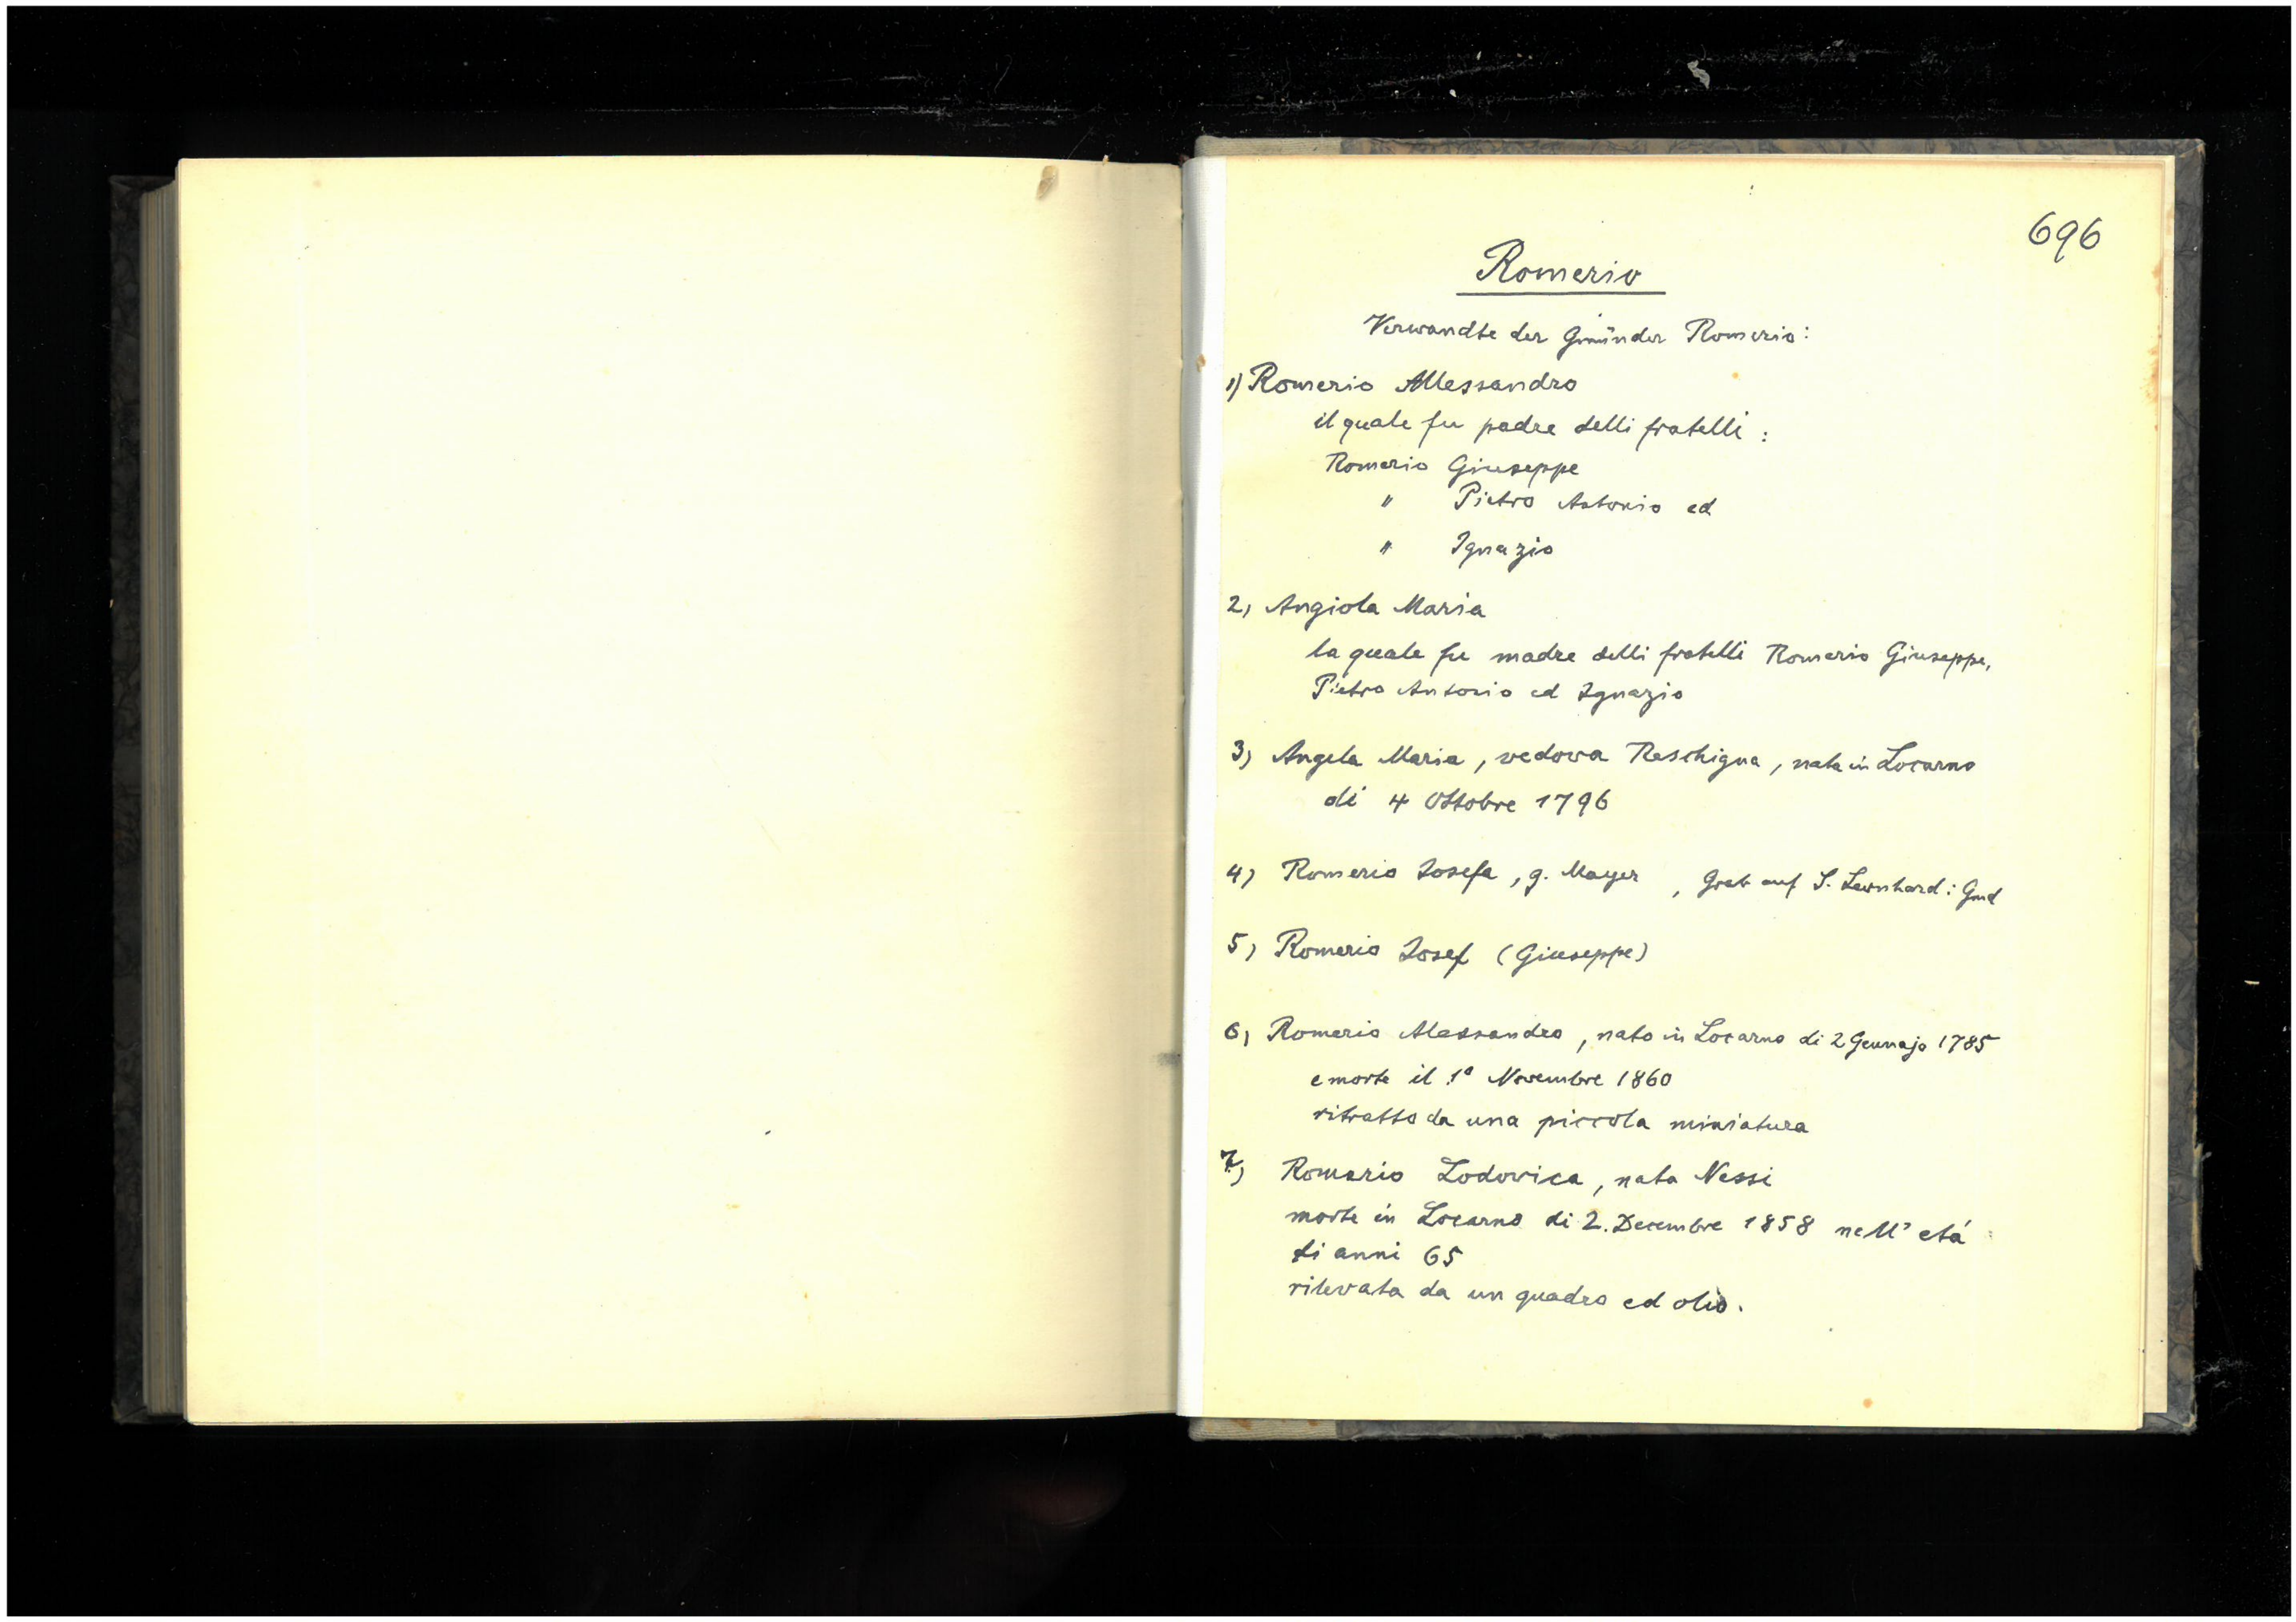 696
Romerio
Verwandte der Gmünder Romerio:
1) Romerio Allessandro
il quale fu padre delli fratelli :
Romerio Giuseppe
" Pietro Antonio ed
" Ignazio
2, Angiola Maria
la quale fu madre delli fratelli Romerio Giuseppe,
Pietro Antonio ed Ignazio
3) Angela Maria, vedova Reschigna, nata in Locarno
di 4 Ottobre 1796
4) Romerio Josefa, g. Mayer , Grab auf S. Leonhard: Gmd
5, Romerio Josef (Giuseppe)
6, Romerio Alessandro, nato in Locarno di 2 Gennajo 1785
e morte il 1º Novembre 1860
ritratto da una piccola miniatura
7, Romerio Lodovica, nata Nessi
morte in Locarno di 2. Decembre 1858 nell' etá
di anni 65
rilevata da un quadro ed olio.